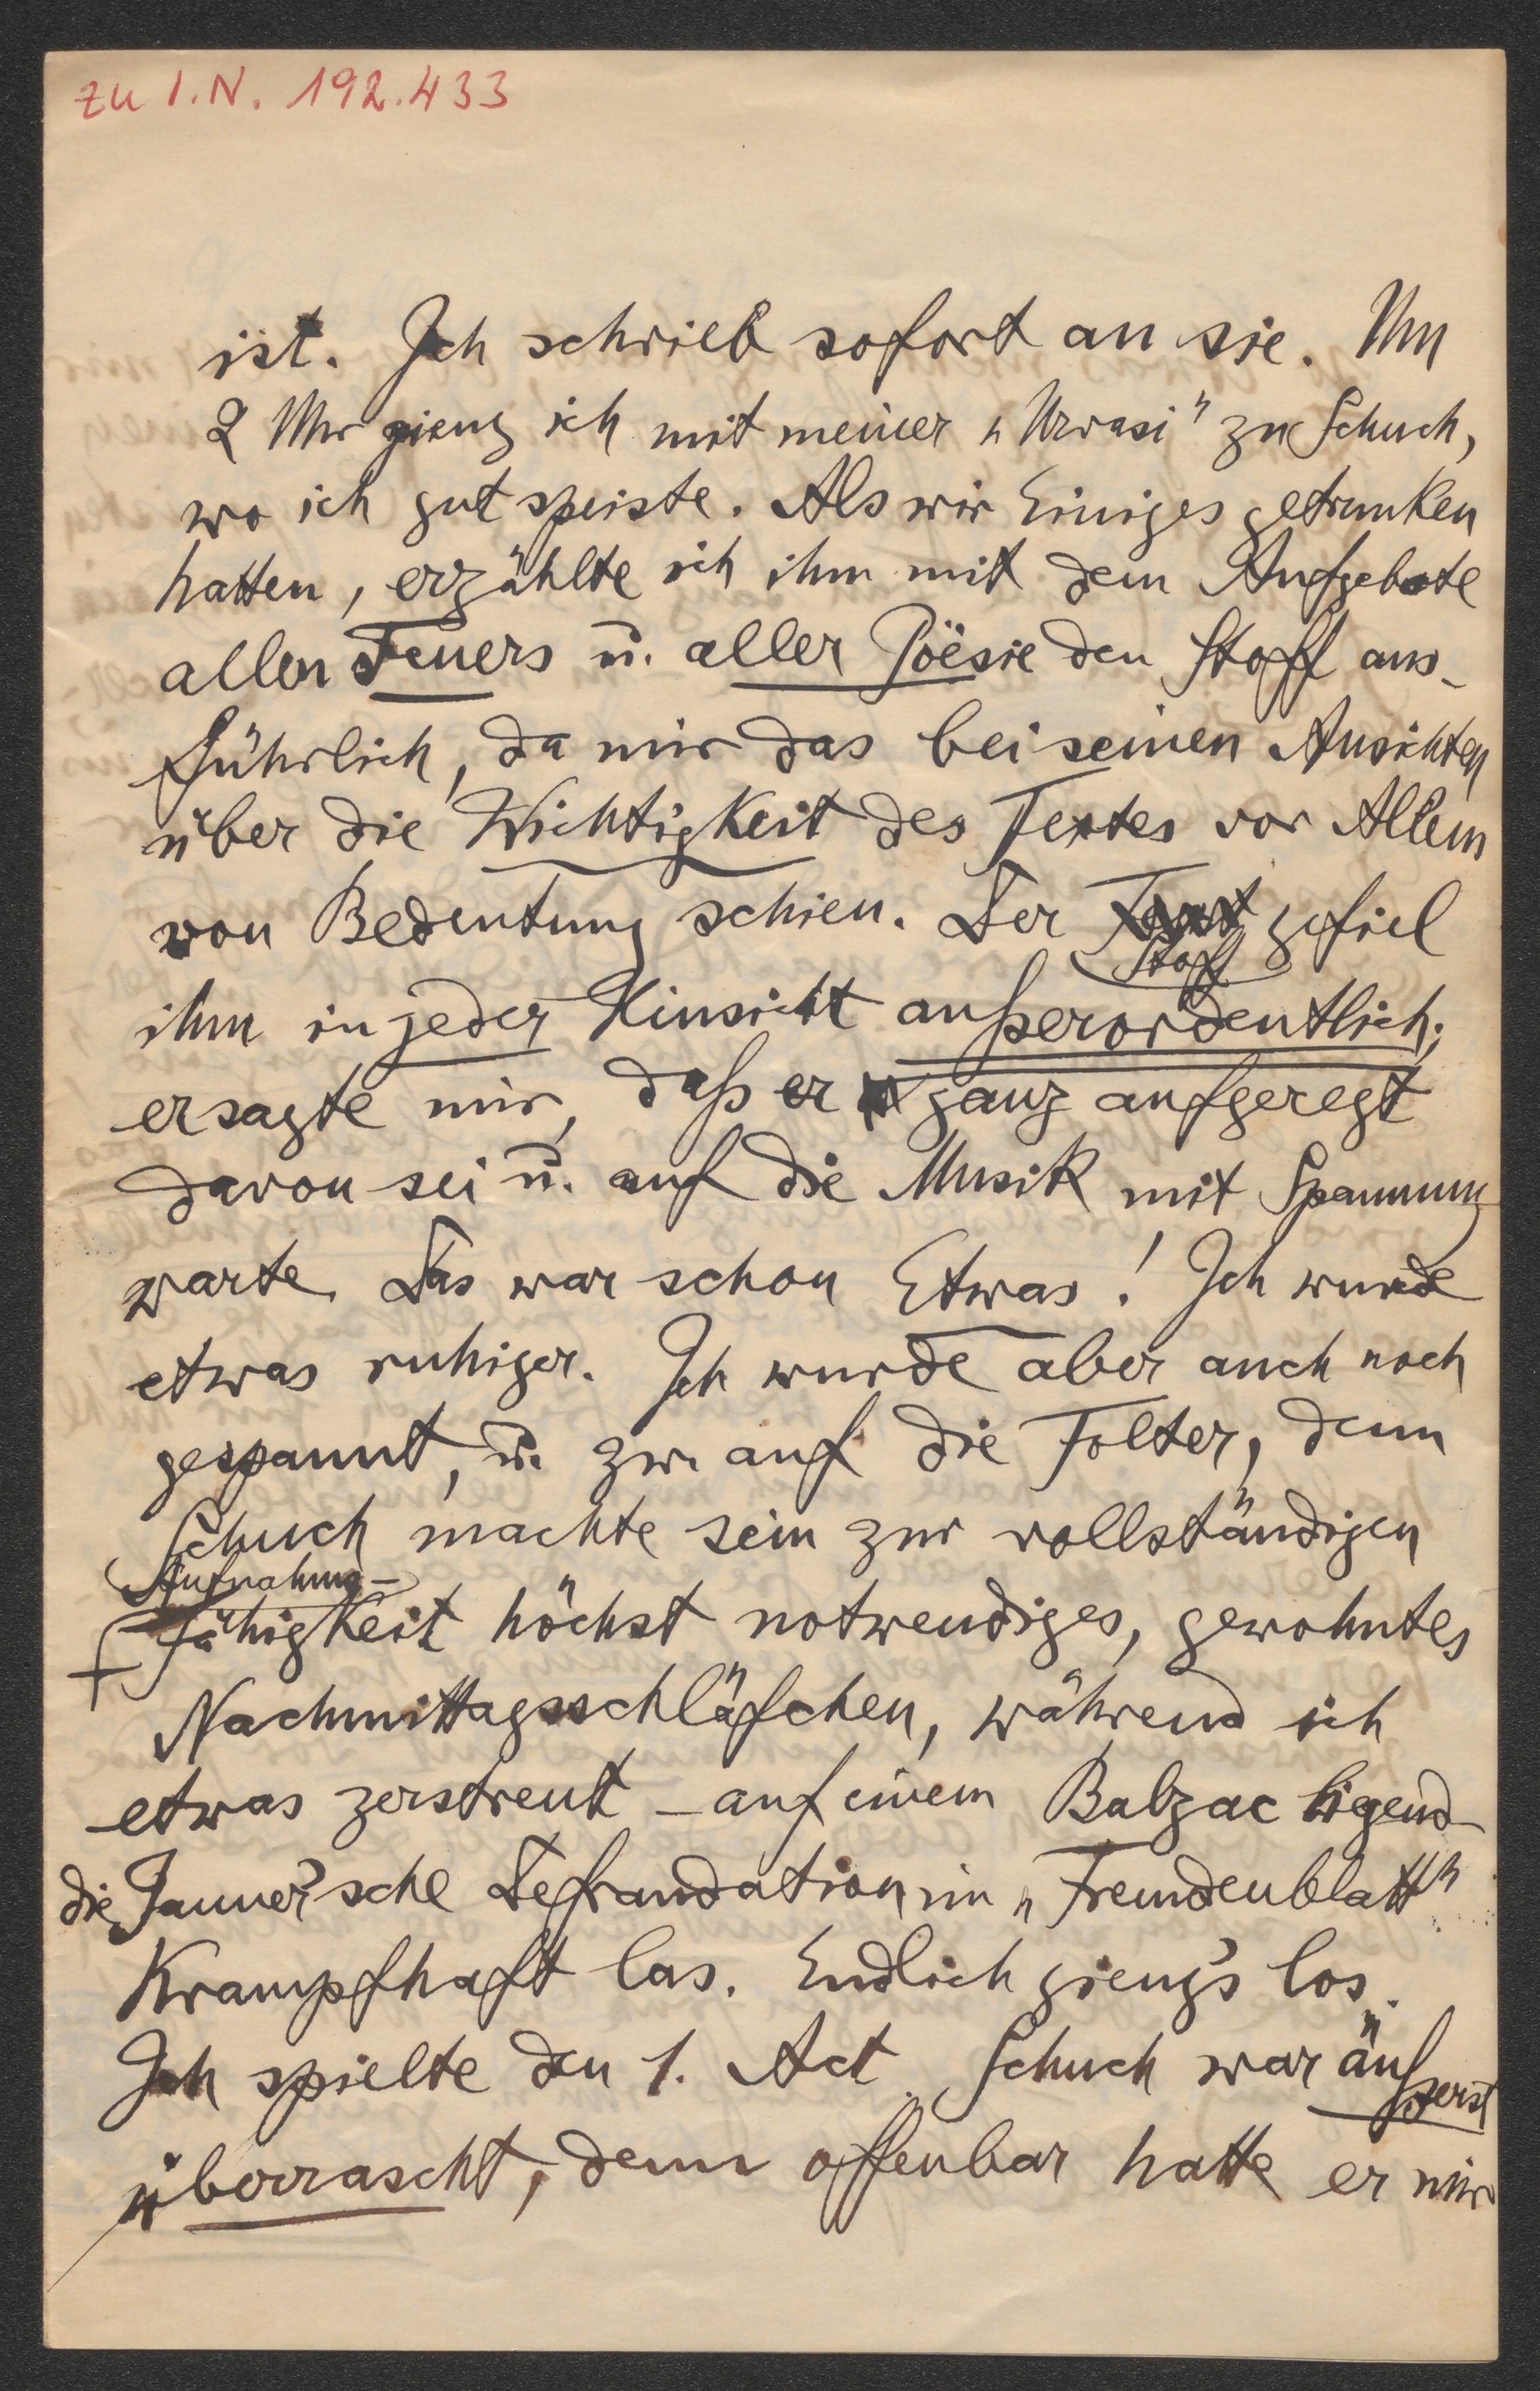 zu I.N. 192.433
ist. Ich schrieb sofort an sie. Um
2 Uhr gieng ich mit meiner „Urvasi" zu Schuch,
wo ich gut speiste. Als wir Einiges getrunken
hatten, erzählte ich ihm mit dem Aufgebote
allen Feuers u. aller Poësie den Stoff aus-
führlich, da mir das bei seinen Ansichten
über die Wichtigkeit des Textes vor Allem
von Bedeutung schien. Der Text gefiel
Stoff
ihm in jeder Hinsicht außerordentlich;
er sagte mir, daß er ganz aufgeregt
davon sei u. auf die Musik mit Spannung
warte. Das war schon Etwas! Ich wurde
etwas ruhiger. Ich wurde aber auch noch
gespannt, u. zw. auf die Folter, denn
Schuch machte sein zur vollständigen
Aufnahms-
fähigkeit höchst notwendiges, gewohntes
Nachmittagsschläfchen, während ich
etwas zerstreut – auf einem Balzac ligend –
die Jauner'sche Defraudation im „Fremdenblatt"
Krampfhaft las. Endlich gieng's los.
Ich spielte den 1. Act. Schuch war äußerst
überrascht, denn offenbar hatte er mir